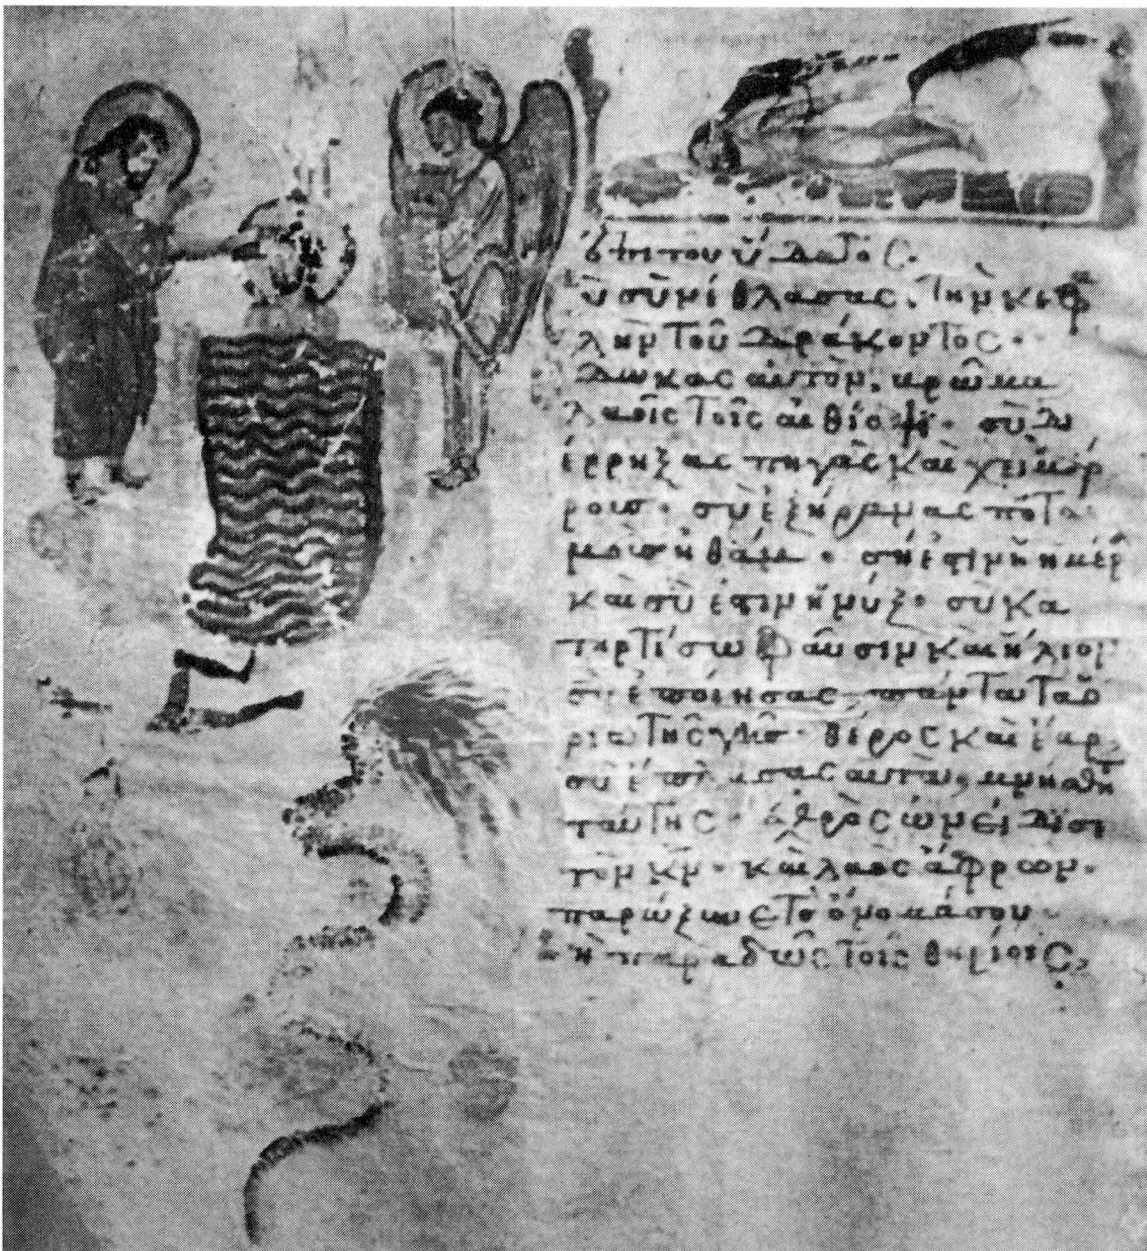 ἐπὶ τοῦ ὕδατος.
σὺ συνέθλασας. τὴν κεφα
λὴν τοῦ δράκοντος.
δωκας αὐτὸν. βρῶμα
λαοῖς τοῖς αἰθίοψι. σὺ δι
έρρηξας πηγὰς καὶ χειμάρ
ρους. σὺ ἐξήρανας ποτα
μοὺς ἠθάμ. σή ἐστιν ἡ ἡμέρ
καὶ σή ἐστιν ἡ νύξ. σὺ κα
τηρτίσω φαῦσιν καὶ ἥλιον
σὺ ἐποίησας πάντα τὰ ὅ
ρια τῆς γῆς. θέρος καὶ ἔαρ
σὺ ἐποίησας αὐτά, μνήσθη
ταύτης. ἐχθρὸς ὠνείδισε
τὸν κν. καὶ λαὸς ἄφρων.
παρώξυνε τὸ ὄνομά σου
μὴ παραδῷς τοῖς θηρίοις